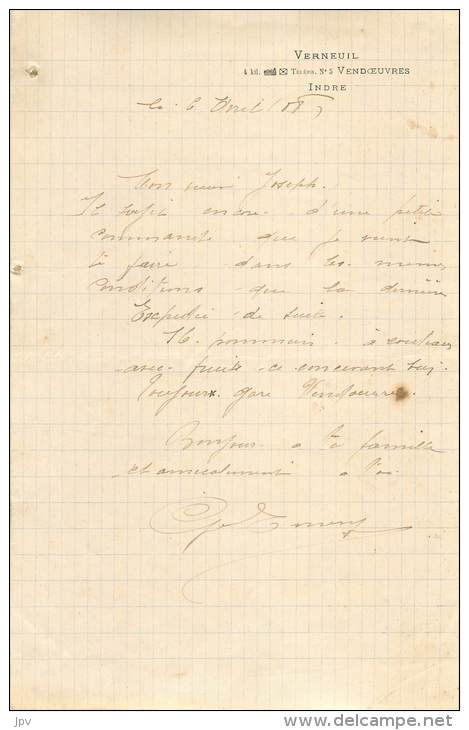 VERNEUIL
4 kil. TÉLÉPH. N° 5 VENDŒUVRES
INDRE
le 6 Avril
Mon vieux Joseph.
Il s'agit encore d'une petite
commande que je vient
te faire dans les memes
conditions que la dernière
Expedié de suite.
16 pommiers à couteau
avec fruits se conservant
Toujours gare Vendoeuvres.
Bonjour a ta famille
et amicalement a toi
jpv
www.delcampe.net